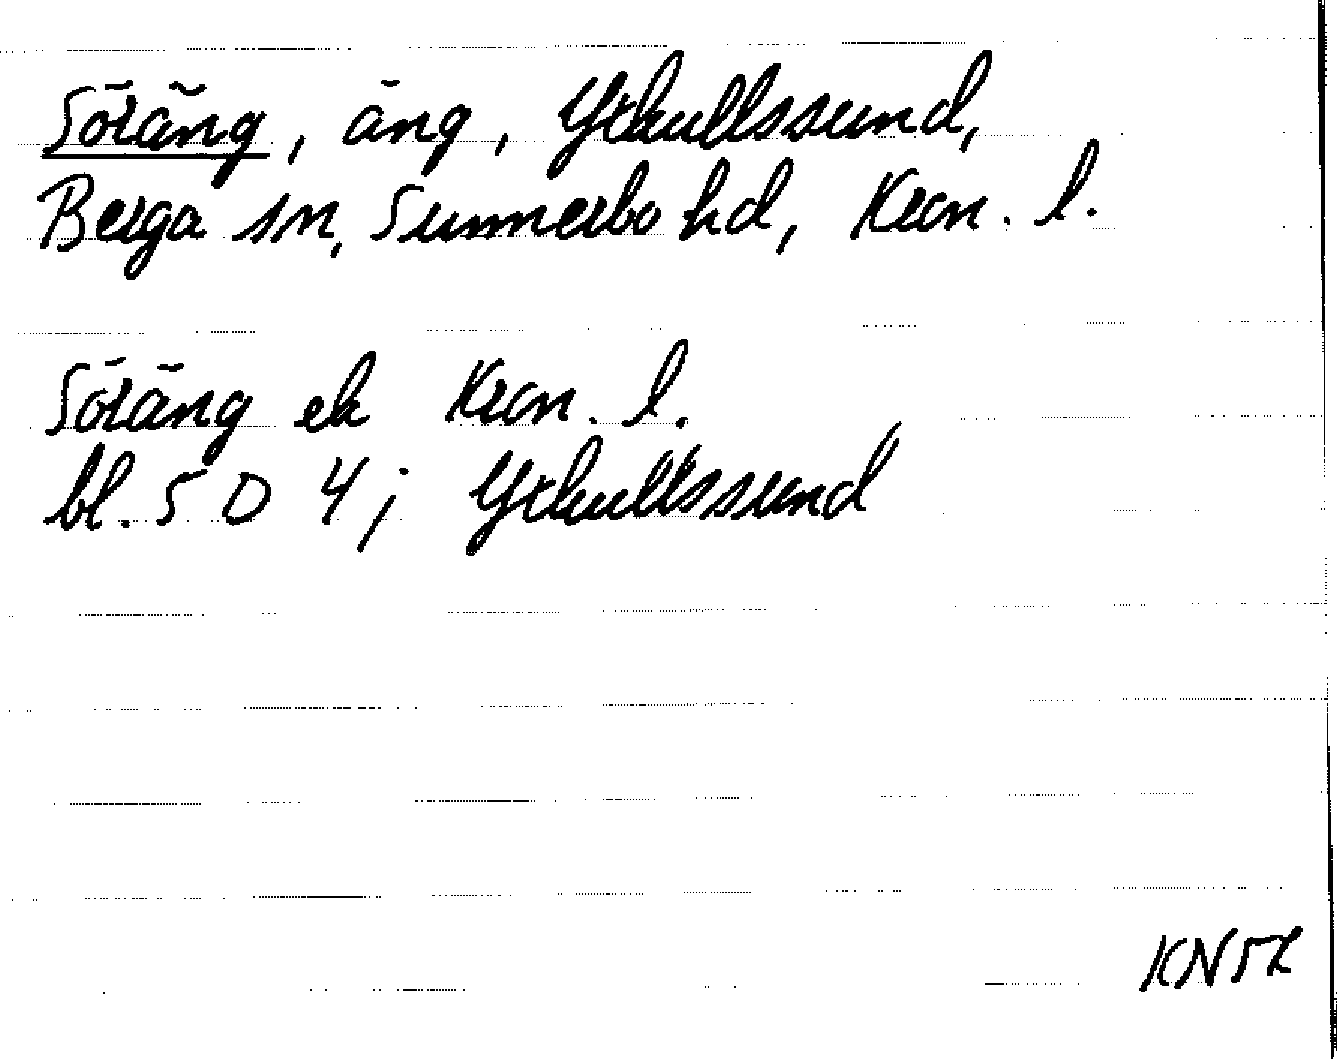 Söräng, äng, Ytkullssund,
Berga sn, Sunnerbo hd, Kron. l.
Söräng ek Kron. l.
bl. 5 D 4j Ytkullssund